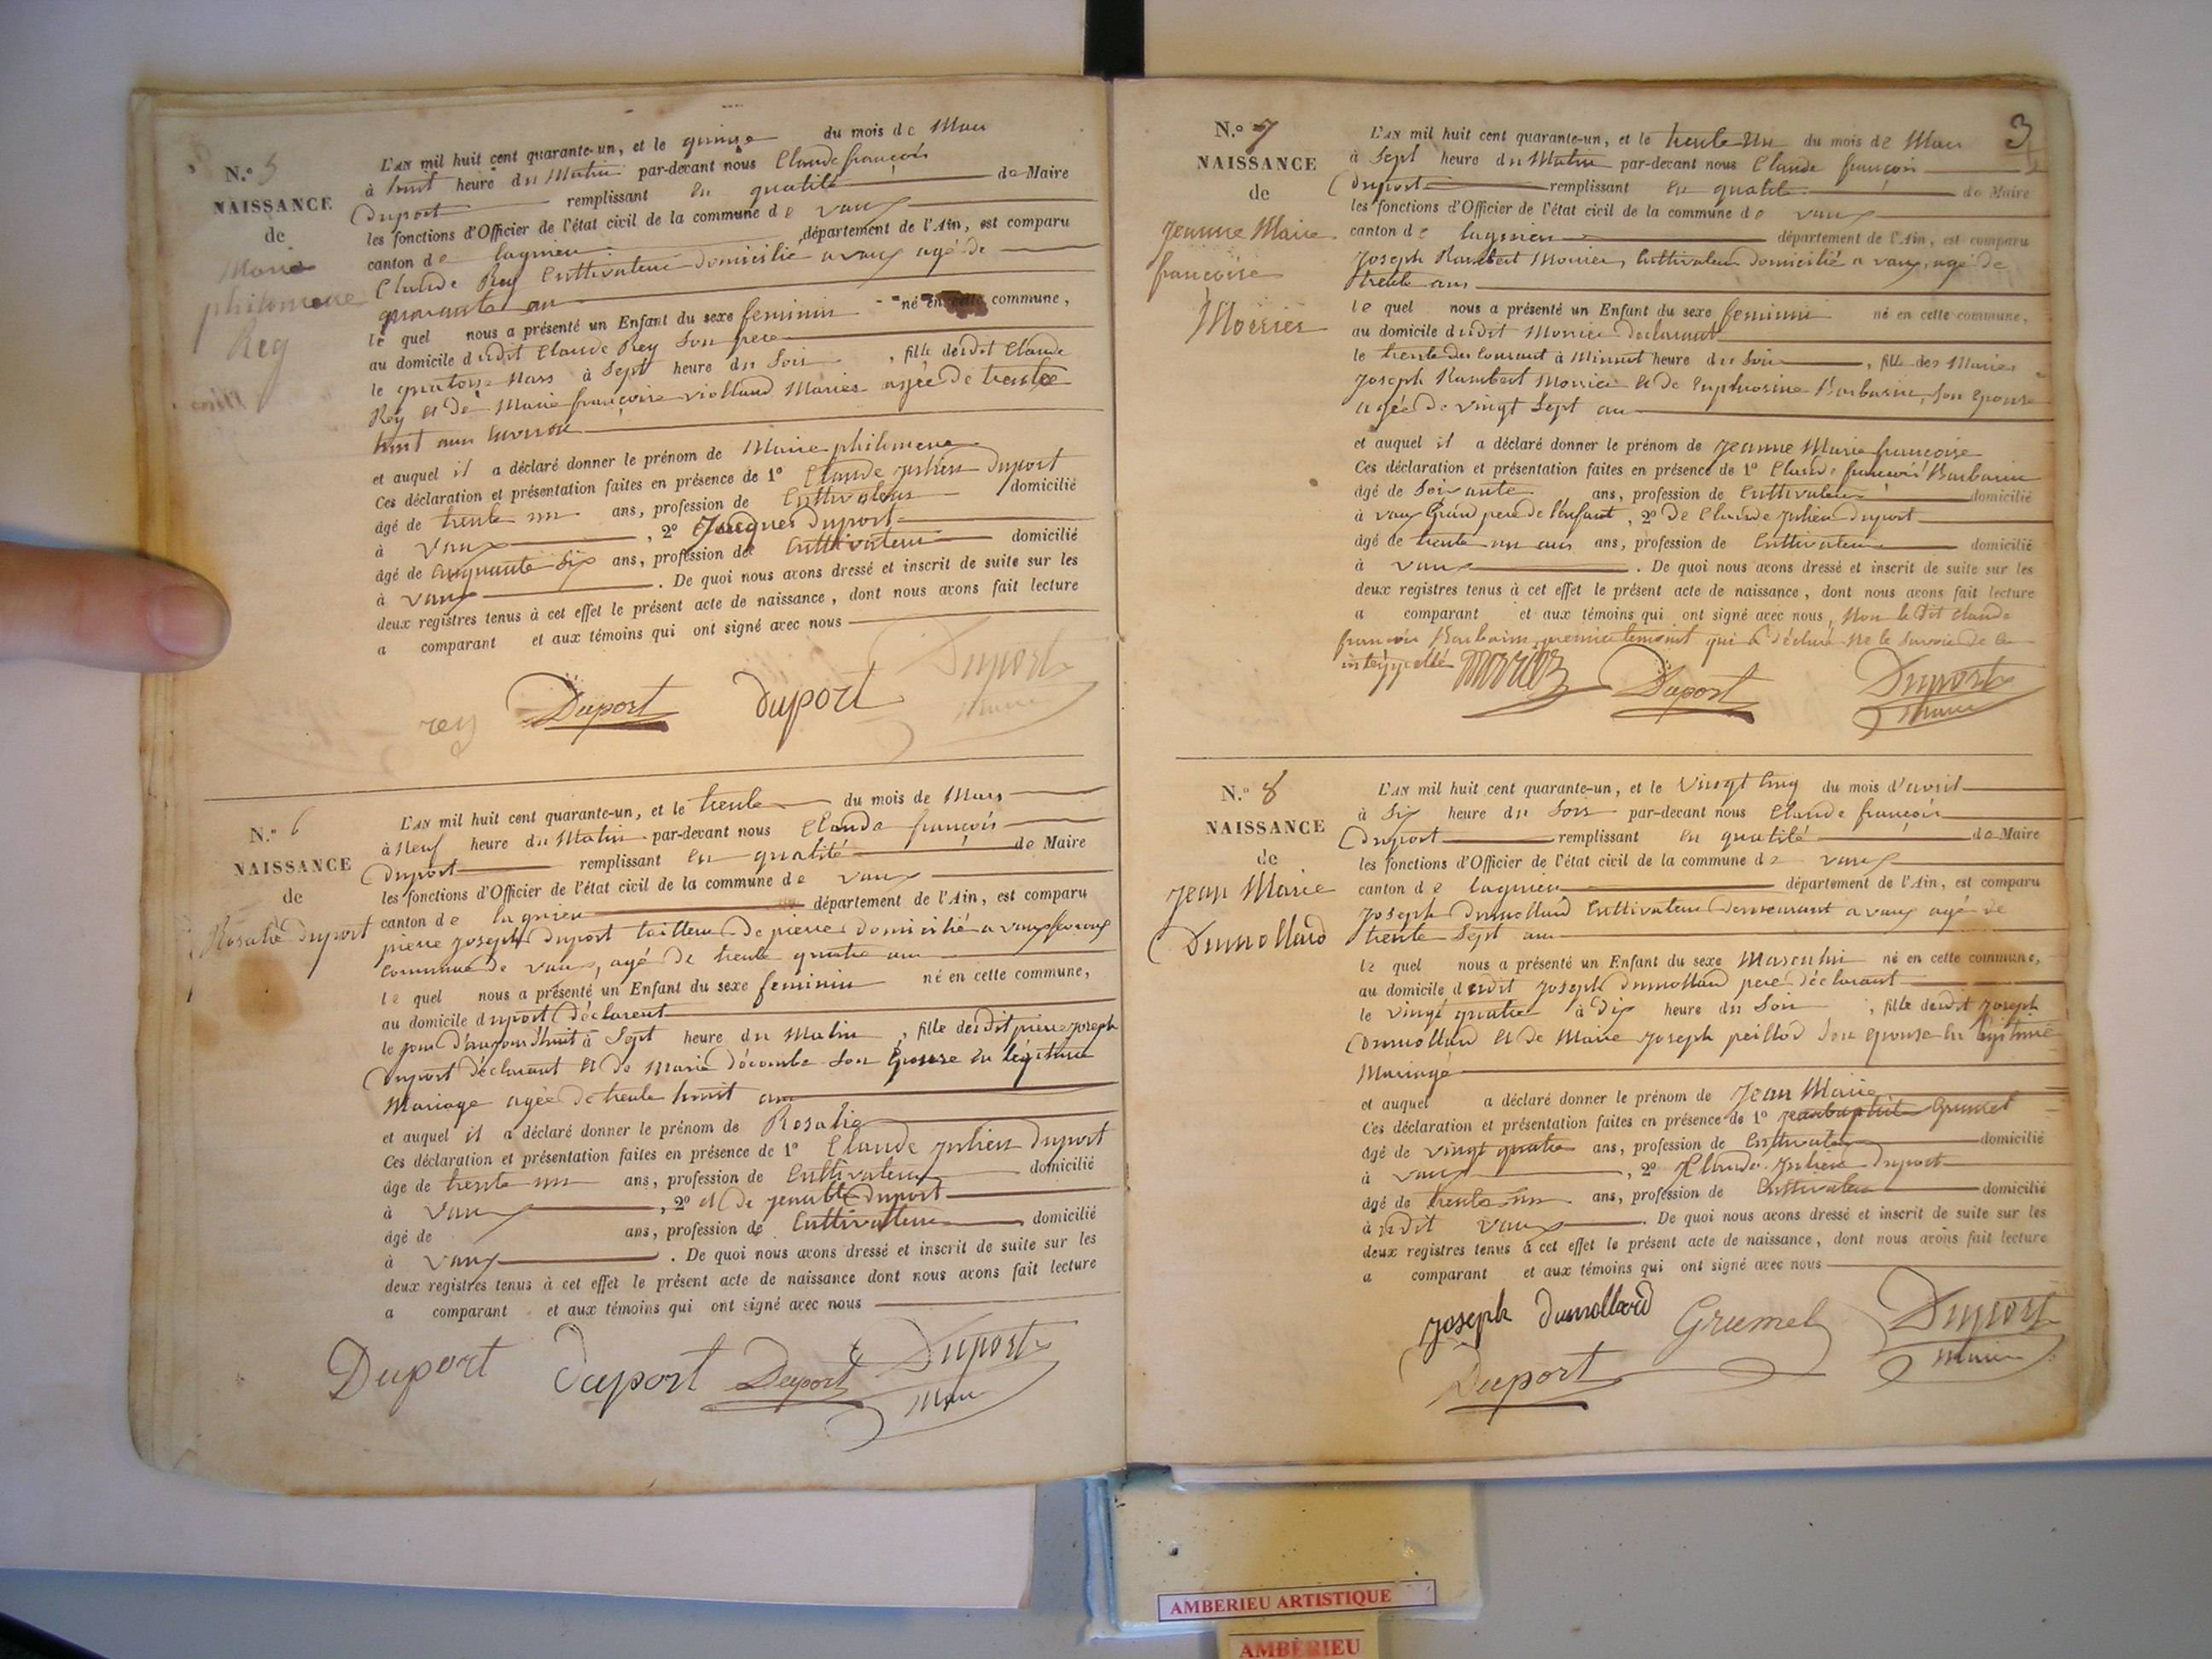 N.° 5
NAISSANCE
de
Marie
philomene
Rey
L'AN mil huit cent quarante-un, et le quinze du mois de Mars
à huit heure du Matin par-devant nous Claude françois
Duport remplissant en qualité de Maire
les fonctions d'Officier de l'état civil de la commune de vaux
canton de lagnieu département de l'Ain, est comparu
Claude Rey Cultivateur domicilié a vaux agé de
quarante an
le quel nous a présenté un Enfant du sexe feminin né en cette commune,
au domicile dudit Claude Rey Son pere
le quatorze Mars à Sept heure du Soir, fille dudit Claude
Rey et de Marie françoise violland Mariés agée de trente
huit ans environ
et auquel il a déclaré donner le prénom de Marie philomene
Ces déclaration et présentation faites en présence de 1° Claude julien Duport
âgé de trente un ans, profession de Cultivateur domicilié
à Vaux, 2° Jacques Duport
âgé de Cinquante Six ans, profession de Cultivateur domicilié
à vaux. De quoi nous avons dressé et inscrit de suite sur les
deux registres tenus à cet effet le présent acte de naissance, dont nous avons fait lecture
a comparant et aux témoins qui ont signé avec nous
rey Duport duport Duport
Maire
N.° 6
NAISSANCE
de
Rosalie duport
L'AN mil huit cent quarante-un, et le trente du mois de Mars
à Neuf heure du Matin par-devant nous Claude françois
Duport remplissant en qualité de Maire
les fonctions d'Officier de l'état civil de la commune de vaux
canton de lagnieu département de l'Ain, est comparu
pierre joseph duport tailleur de pierre domicilié a vaux
commune de vaux, agé de trente quatre an
le quel nous a présenté un Enfant du sexe feminin né en cette commune,
au domicile duport déclarent
le jour d'aujourdhuit à Sept heure du Matin, fille dudit pierre joseph
Duport déclarant et de Marie décombe Son Epouse en légitime
Mariage agée de trente huit an
et auquel il a déclaré donner le prénom de Rosalie
Ces déclaration et présentation faites en présence de 1° Claude julien duport
âgé de trente un ans, profession de Cultivateur domicilié
à Vaux, 2° et de duport
âgé de ans, profession de Cultivateur domicilié
à vaux. De quoi nous avons dressé et inscrit de suite sur les
deux registres tenus à cet effet le présent acte de naissance dont nous avons fait lecture
a comparant et aux témoins qui ont signé avec nous
Duport Duport Duport Duport
Maire
3
N.° 7
NAISSANCE
de
Jeanne Marie
françoise
Morrier
L'AN mil huit cent quarante-un, et le trente Un du mois de Mars
à Sept heure du Matin par-devant nous Claude françois
Duport remplissant en qualité de Maire
les fonctions d'Officier de l'état civil de la commune de vaux
canton de lagnieu département de l'Ain, est comparu
Joseph Rambert Morrier, Cultivateur domicilié a vaux, agé de
trente ans
le quel nous a présenté un Enfant du sexe feminin né en cette commune,
au domicile dudit Morrier declarant
le trente du Courant à Minuit heure du Soir, fille des Mariés
Joseph Rambert Morrier et de Euphrosine Barbarin, Son epouse
agée de vingt Sept an
et auquel il a déclaré donner le prénom de Jeanne Marie francoise
Ces déclaration et présentation faites en présence de 1° Claude françois Barbarin
âgé de Soixante ans, profession de Cultivateur domicilié
à vaux Grand pere de l'enfant, 2° de Claude julien duport
âgé de trente un ans ans, profession de Cultivateur domicilié
à vaux. De quoi nous avons dressé et inscrit de suite sur les
deux registres tenus à cet effet le présent acte de naissance, dont nous avons fait lecture
a comparant et aux témoins qui ont signé avec nous, Non le dit Claude
françois Barbarin premier temoint qui a déclaré ne le Savoir de ce
interppellé Morrier Duport Duport
Maire
N.° 8
NAISSANCE
de
Jean Marie
Dumollard
L'AN mil huit cent quarante-un, et le Vingt Cinq du mois d'avril
à Six heure du Soir par-devant nous Claude françois
Duport remplissant en qualité de Maire
les fonctions d'Officier de l'état civil de la commune de vaux
canton de lagnieu département de l'Ain, est comparu
Joseph Dumollard Cultivateur demeurant a vaux agé de
trente Sept an
le quel nous a présenté un Enfant du sexe Masculin né en cette commune,
au domicile dudit joseph dumollard pere déclarant
le vingt quatre à Dix heure du Soir, fille dudit Joseph
Dumollard et de Marie joseph peillod Son epouse en légitime
Mariage
et auquel a déclaré donner le prénom de Jean Marie
Ces déclaration et présentation faites en présence de 1° jeanbaptiste Grumel
âgé de vingt quatre ans, profession de Cultivateur domicilié
à vaux, 2° Claude julien duport
âgé de trente un ans, profession de Cultivateur domicilié
à udit Vaux. De quoi nous avons dressé et inscrit de suite sur les
deux registres tenus à cet effet le présent acte de naissance, dont nous avons fait lecture
a comparant et aux témoins qui ont signé avec nous
joseph dumollard Grumel Duport
Duport Maire
AMBERIEU ARTISTIQUE
AMBÉRIEU